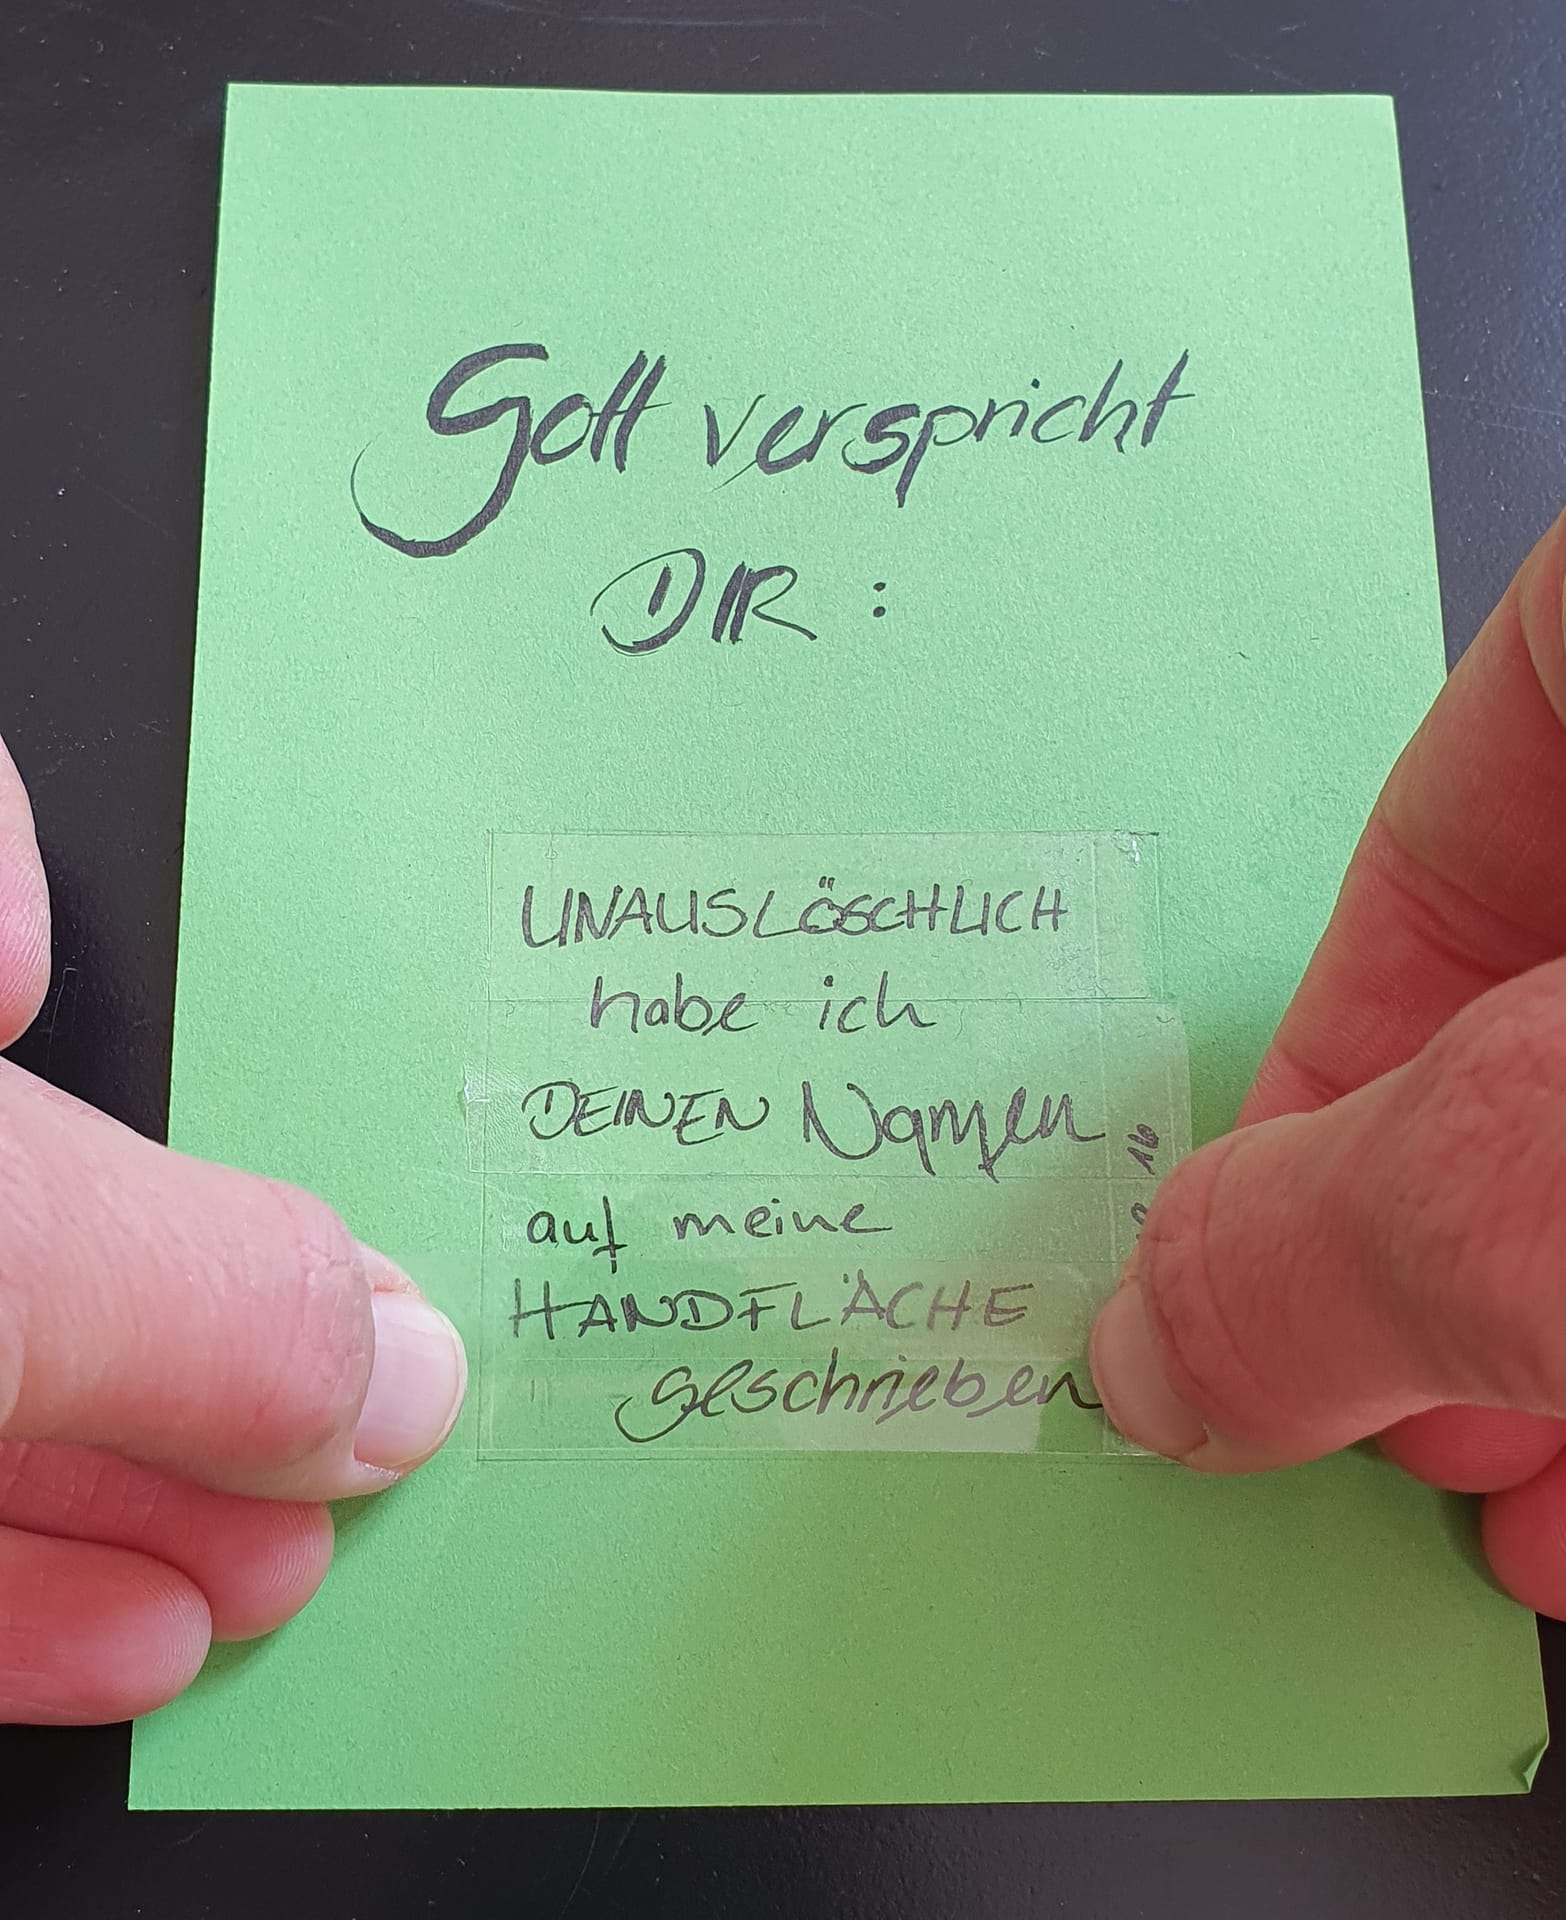 Gott verspricht
DIR :
UNAUSLÖSCHLICH
habe ich
DEINEN Namen
auf meine
HANDFLÄCHE
geschrieben
16